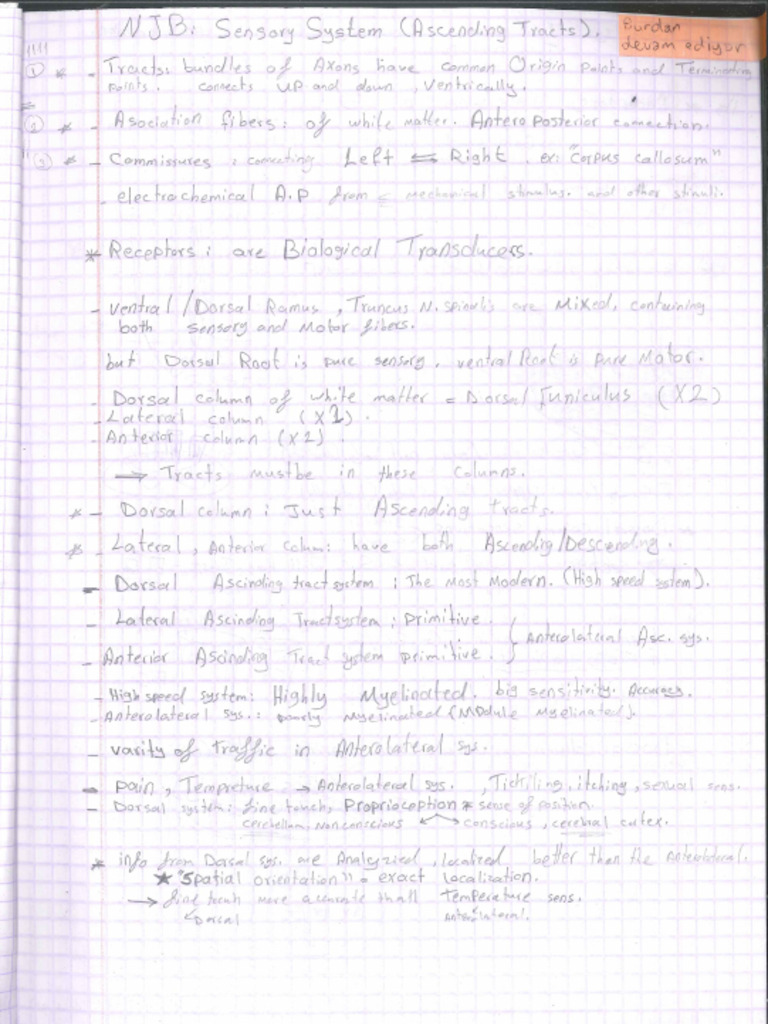 NJB: Sensory System (Ascending Tracts).
Burdan
devam ediyor
1 * - Tracts: bundles of Axons have common Origin points and Terminating
points. connects up and down, Ventrically.
2 * - Asociation fibers: of white matter. Antero posterior connection.
3 * - Commissures: connecting Left ⇌ Right. ex: "corpus callosum"
- electrochemical A.P from mechanical stimulus. and other stimuli.
* Receptors: are Biological Transducers.
- Ventral/Dorsal Ramus, Truncus N. spinalis are Mixed, containing
both sensory and Motor fibers.
but Dorsal Root is pure sensory. ventral Root is pure Motor.
- Dorsal column of white matter = Dorsal Funiculus (X2)
- Lateral column (X1).
- Anterior column (X2)
→ Tracts mustbe in these Columns.
* - Dorsal column: Just Ascending tracts.
* - Lateral, Anterior Colum: have both Ascending/Descending.
- Dorsal Ascinding tract system: The Most Modern. (High speed system).
- Lateral Ascinding Tractsystem: primitive.
- Anterior Ascinding Tract system primitive. } Anterolateral Asc. sys.
- High speed system: Highly Myelinated. big sensitivity. Accuracy.
- Anterolateral sys.: poorly Myelinated (Mddule Myelinated).
- varity of traffic in Anterolateral sys.
- pain, Tempreture → Anterolateral sys., Tickiling, itching, sexual sens.
- Dorsal system: fine touch, Proprioception * sense of position.
cerebellum, nonconscious ↙ ↘ conscious, cerebral cutex.
* info from Dorsal sys. are Analyzied, localized better than the Anterolateral.
★ "Spatial orientation" = exact localization.
→ fine touch more accurate than Temperature sens.
↙ Dorsal Anterolateral.